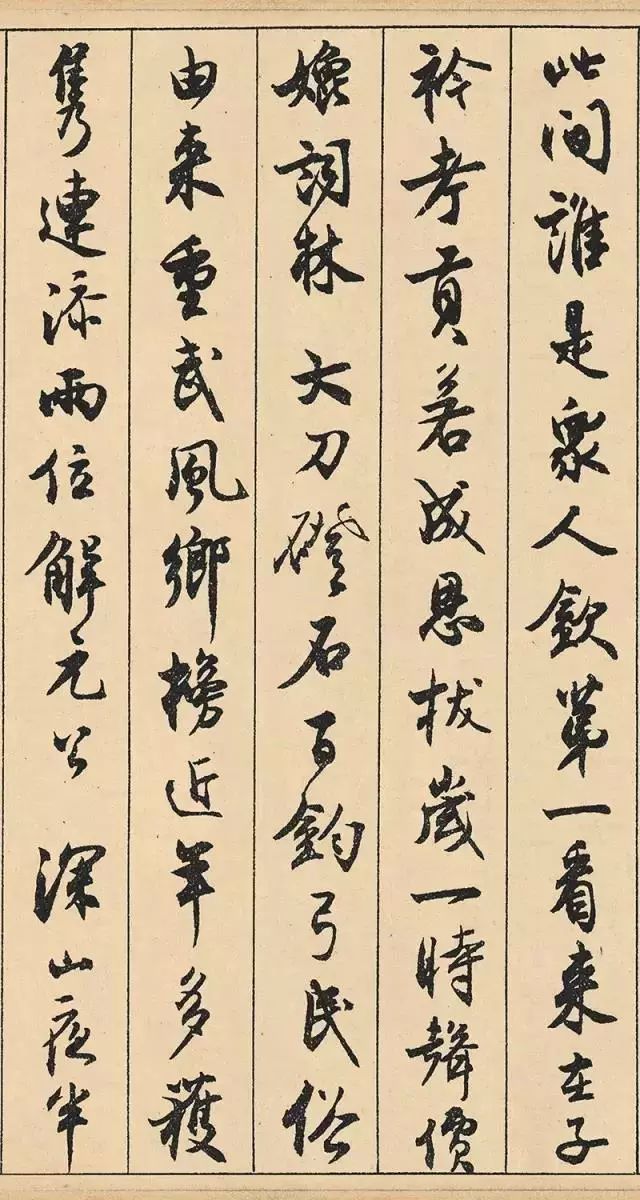 此间誰是衆人欽第一看来在子
衿考貢若成恩拔歲一時聲價
媲詞林 大刀磴石百鈞弓民俗
由来重武風鄉榜近年多穫
雋連添兩位解元公 深山夜半